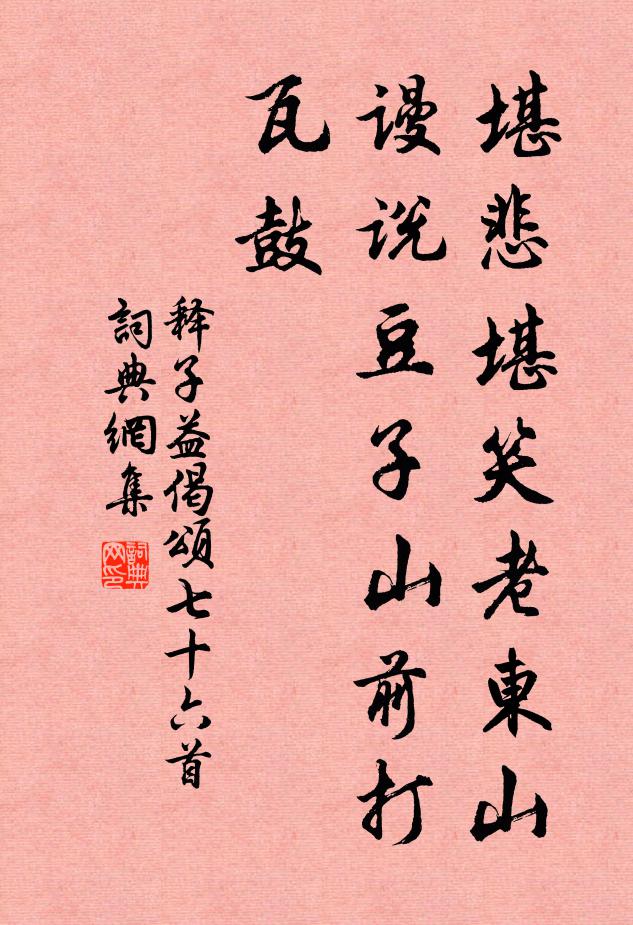 堪悲堪笑老東山
谩说豆子山前打
瓦鼓
释子益偈頌七十六首
詞典網集
詞典
网印